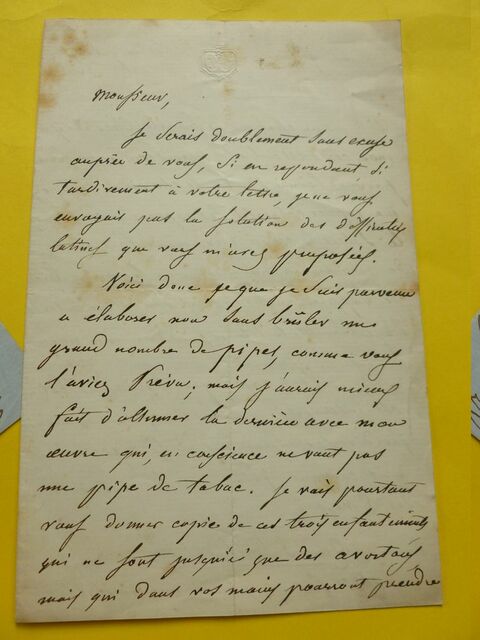 Monsieur,
Je serais doublement sans excuse
auprès de vous, si en repondant si
tardivement à votre lettre, je ne vous
envoyais pas la solution des difficultés
latines que vous m'avez proposées.
Voici donc ce que je suis parvenu
a élaborer non sans brûler un
grand nombre de pipes, comme vous
l'aviez prévu; mais j'aurais mieux
fait d'allumer la dernière avec mon
œuvre qui, en conscience ne vaut pas
une pipe de tabac. Je vais pourtant
vous donner copie de ces trois
qui ne sont jusqu'ici que des avortons
mais qui dans vos mains pourront prendre